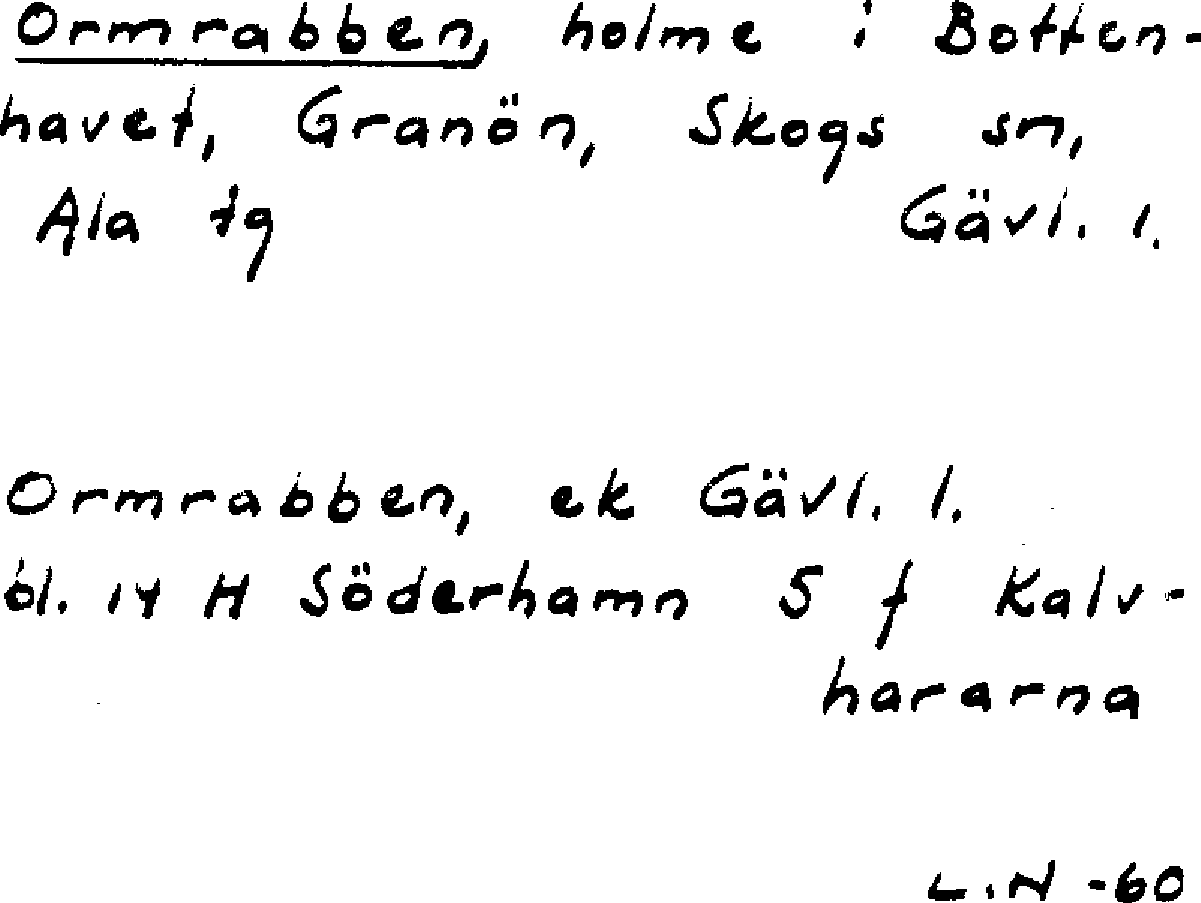 Ormrabben, holme i Botten-
havet, Granön, Skogs sn,
Ala tg Gävl. l.
Ormrabben, ek Gävl. l.
bl. 14 H Söderhamn 5 f Kalv-
hararna
L.N -60